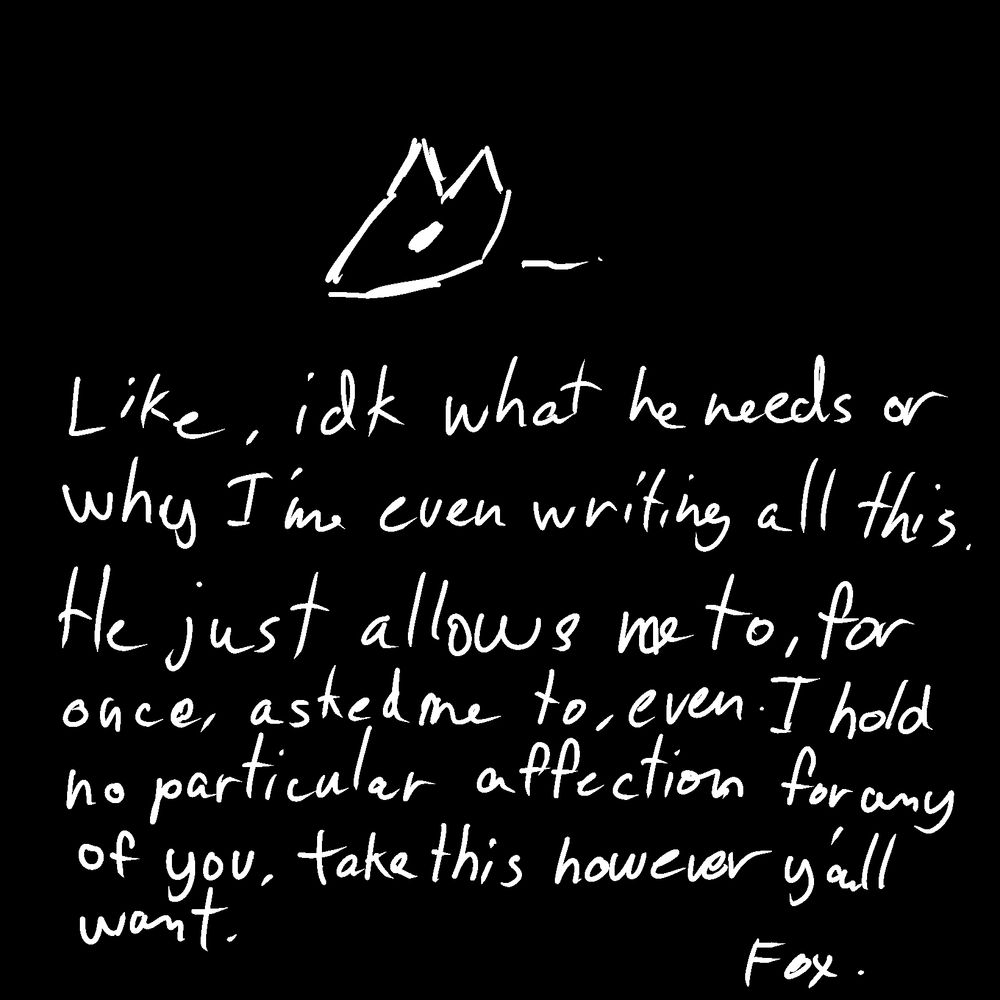 Like, idk what he needs or
why I'm even writing all this.
He just allows me to, for
once, asked me to, even. I hold
no particular affection for any
of you, take this however y'all
want.
Fox.